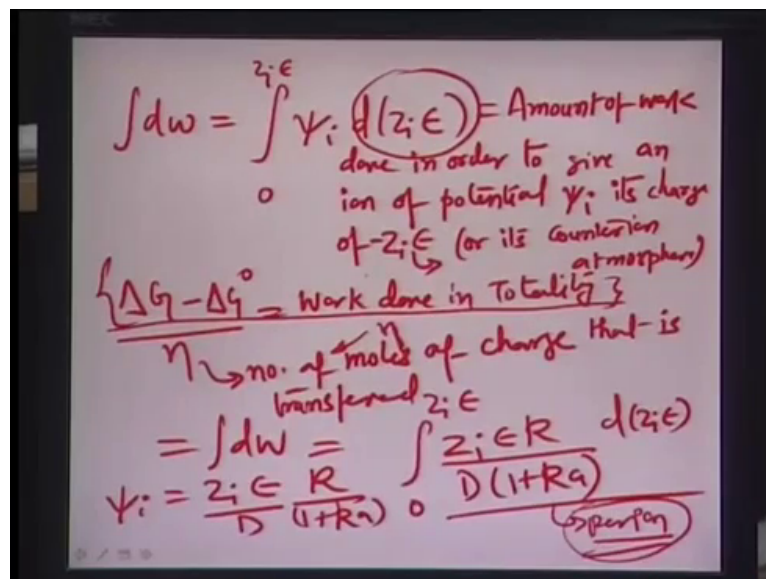 ∫dw = ∫₀^{z_i ϵ} ψ_i d(z_i ϵ) = Amount of work
done in order to give an
ion of potential ψ_i its charge
of -z_i ϵ (or its counterion
atmosphere)
{ΔG - ΔG° = work done in Totality}
η ↳ no. of moles of charge that is
η
transferred
= ∫dw = ∫₀^{z_i ϵ} z_i ϵ K / D(1+Ka) d(z_i ϵ)
ψ_i = z_i ϵ / D K / (1+Ka)
↳ per ion